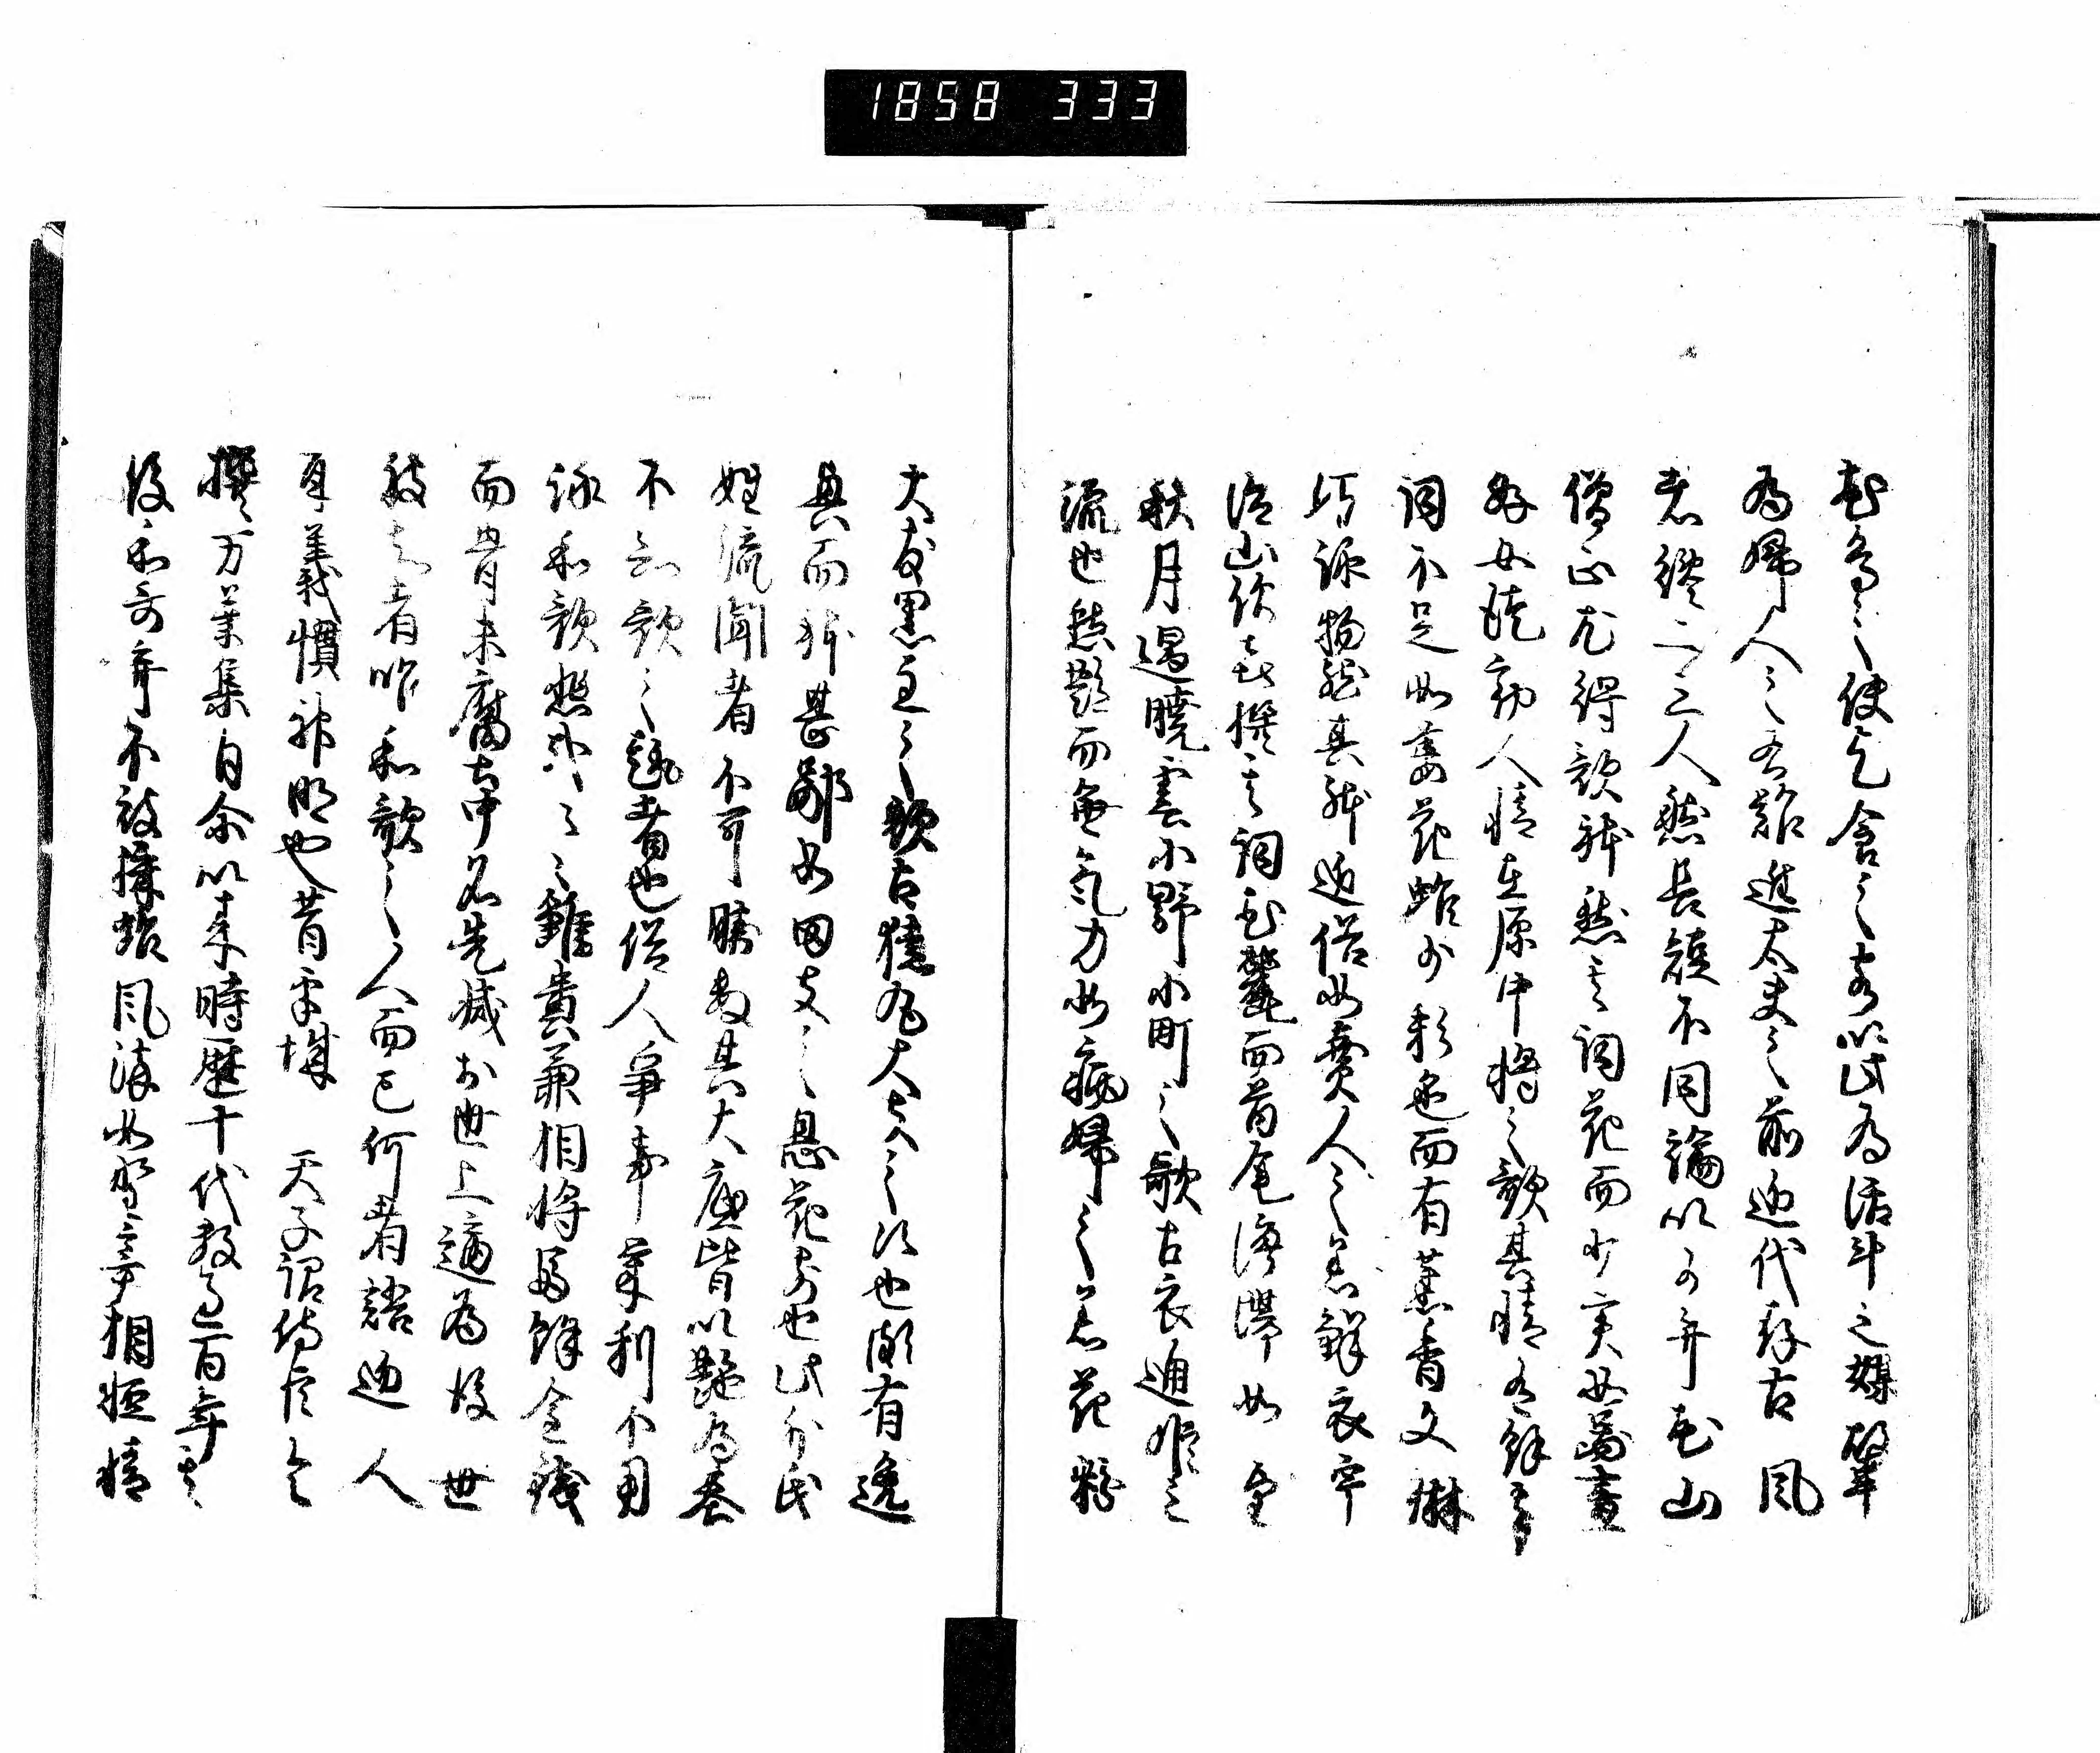 1858 333
花鳥之使乞食之客以此為活計之媒故半
為婦人之右難進大夫之前近代存古風
者纔二三人然長短不同論以可弁花山
僧正尤得歌躰然其詞花而少実如図画
好女徒動人情在原中将之歌其情有余其
詞不足如萎花雖少彩色而有薫香文琳
巧詠物然其躰近俗如賈人之着鮮衣宇
治山僧喜撰其詞花麗而首尾停滞如望
秋月遇暁雲小野小町之歌古衣通姫之
流也然艶而無気力如病婦之着花粉
大友黒主之歌古猿丸大夫之次也頗有逸
興而躰甚鄙如田夫之息花前也此外氏
姓流聞者不可勝数其大底皆以艶為基
不知歌之趣者也俗人争事栄利不用
詠和歌悲哉々々雖貴兼相将富余金銭
而骨未腐土中名先滅於世上適為後世
被知者唯和歌之人而已何者語近人
耳義慣神明也昔平城 天子詔侍臣令
撰万葉集自余以来時歴十代数過百年其
後和哥弃不被採雖風流如野宰相軽情